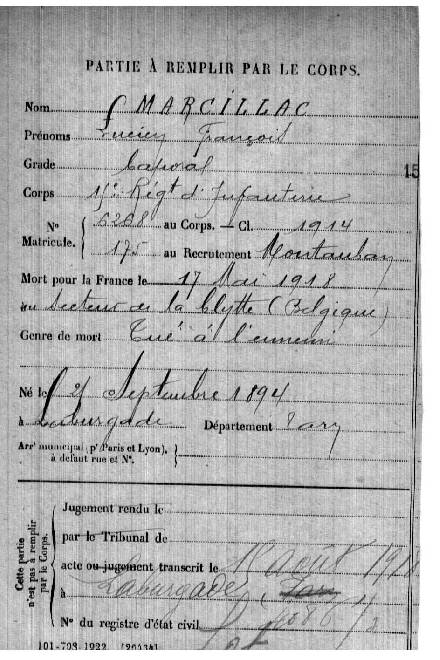 PARTIE À REMPLIR PAR LE CORPS.
Nom MARCILLAC
Prénoms Lucien François
Grade Caporal
15
Corps 15e Régt d'Infanterie
No 6268 au Corps. — Cl. 1914
Matricule. 175 au Recrutement Montauban
Mort pour la France le 17 Mai 1918
au Secteur de la Clytte (Belgique)
Genre de mort Tué à l'ennemi
Né le Septembre 1894
à Laburgade Département
Arrt municipal (pr Paris et Lyon),
à défaut rue et No.
Cette partie
n'est pas à remplir
par le Corps.
Jugement rendu le
par le Tribunal de
acte ou jugement transcrit le Août
à Laburgade
No du registre d'état civil
101-708-1922. [26434]